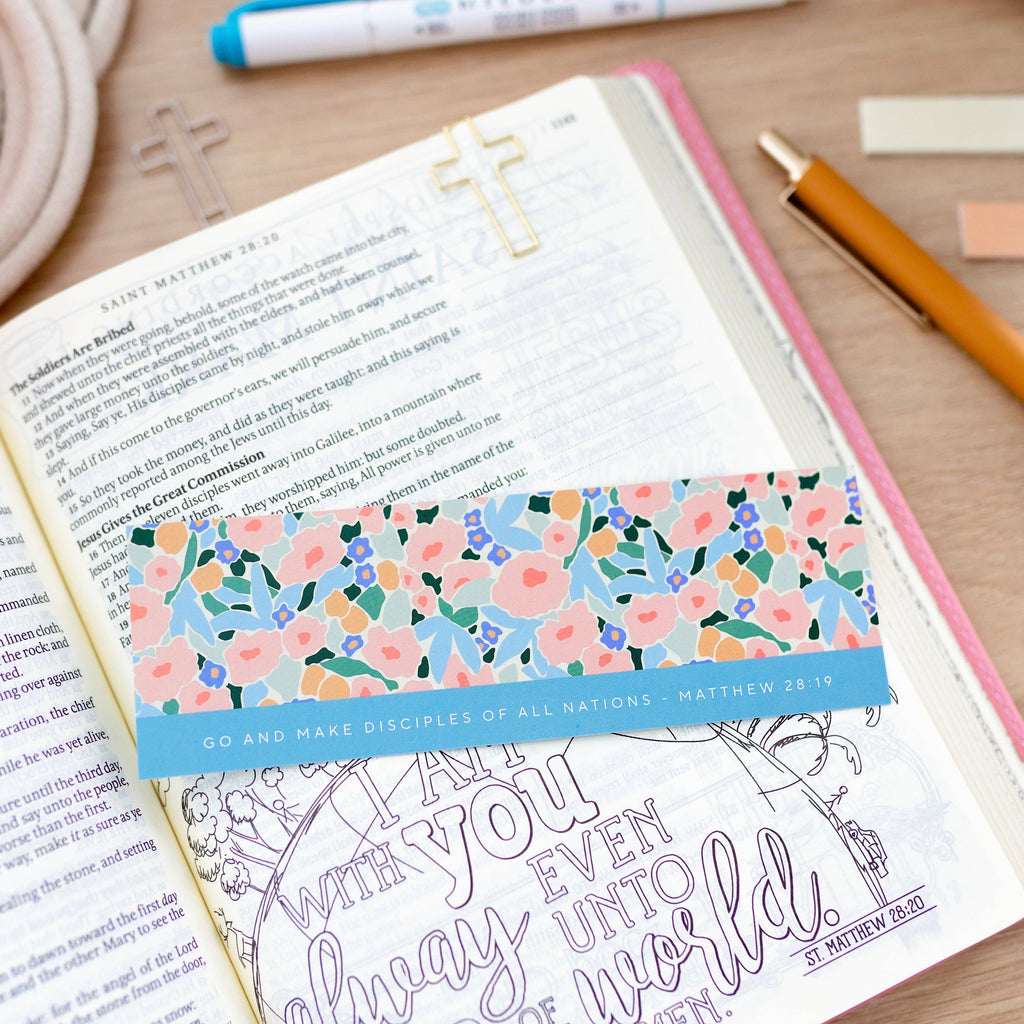 SAINT MATTHEW 28:20
The Soldiers Are Bribed
11 Now when they were going, behold, some of the watch came into the city,
and shewed unto the chief priests all the things that were done.
12 And when they were assembled with the elders, and had taken counsel,
they gave large money unto the soldiers,
13 Saying, Say ye, His disciples came by night, and stole him away while we
slept.
14 And if this come to the governor's ears, we will persuade him, and secure
you.
15 So they took the money, and did as they were taught: and this saying is
commonly reported among the Jews until this day.
Jesus Gives the Great Commission
16 Then eleven disciples went away into Galilee, into a mountain where
Jesus had them.
17 And him, they worshipped him: but some doubted.
18 to them, saying, All power is given unto me
in he
19 them in the name of the
manded you:
GO AND MAKE DISCIPLES OF ALL NATIONS - MATTHEW 28:19
I AM
WITH you
alway
EVEN
UNTO
world.
OF
MEN.
ST. MATTHEW 28:20
s and
, named
mmanded
n linen cloth,
the rock: and
ted.
ng over against
aration, the chief
while he was yet alive,
ure until the third day,
nd say unto the people,
worse than the first.
way, make it as sure as ye
ealing the stone, and setting
to dawn toward the first day
and the other Mary to see the
for the angel of the Lord
the stone from the door,
snow: